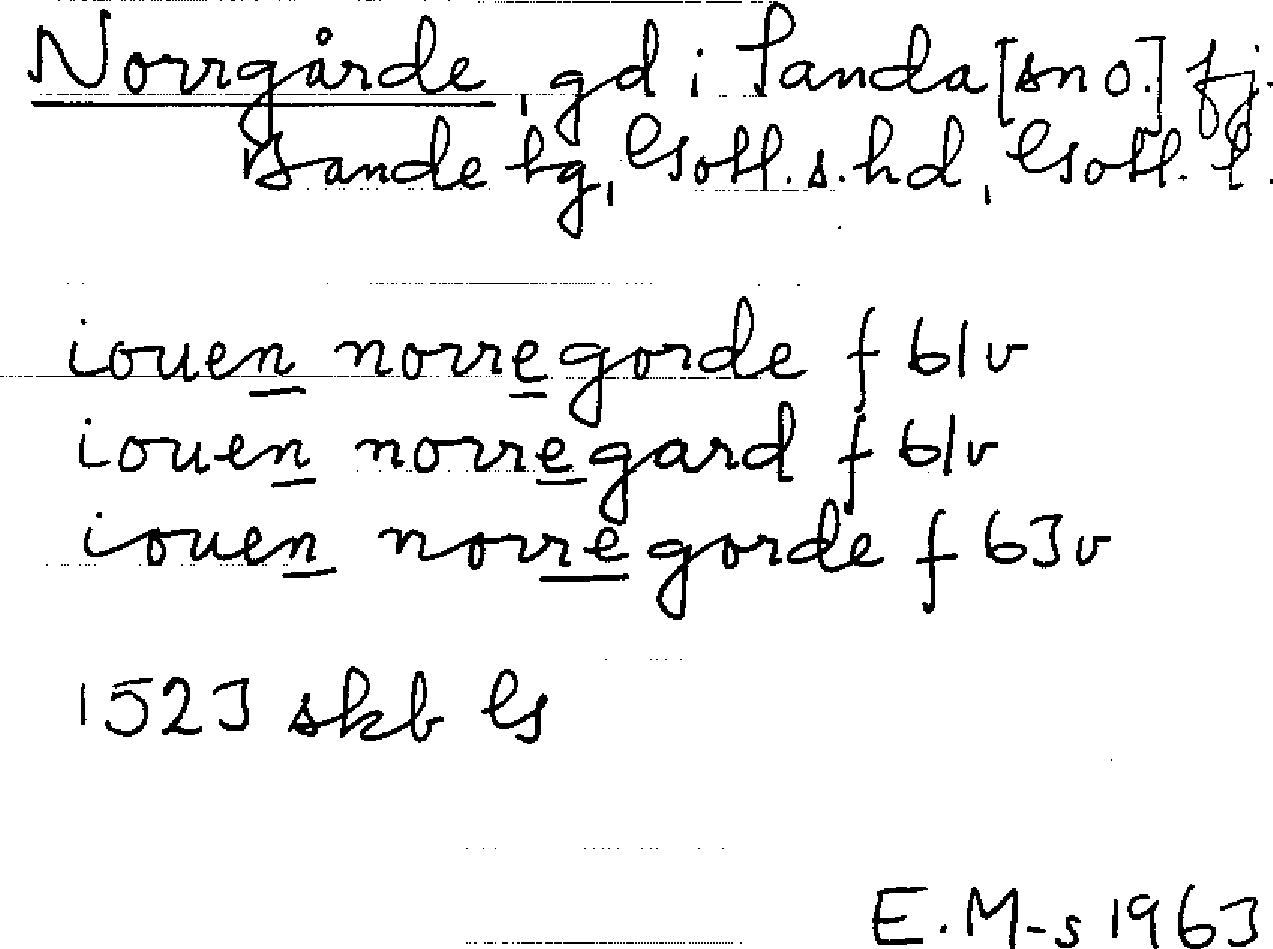 Norrgårde, gd i Sanda [sn o.] fj.
Bande tg, Gotl. s. hd, Gotl. l.
iouen norregorde f 61v
iouen norregard f 61v
iouen norregorde f 63v
1523 skb G
E. M-s 1963